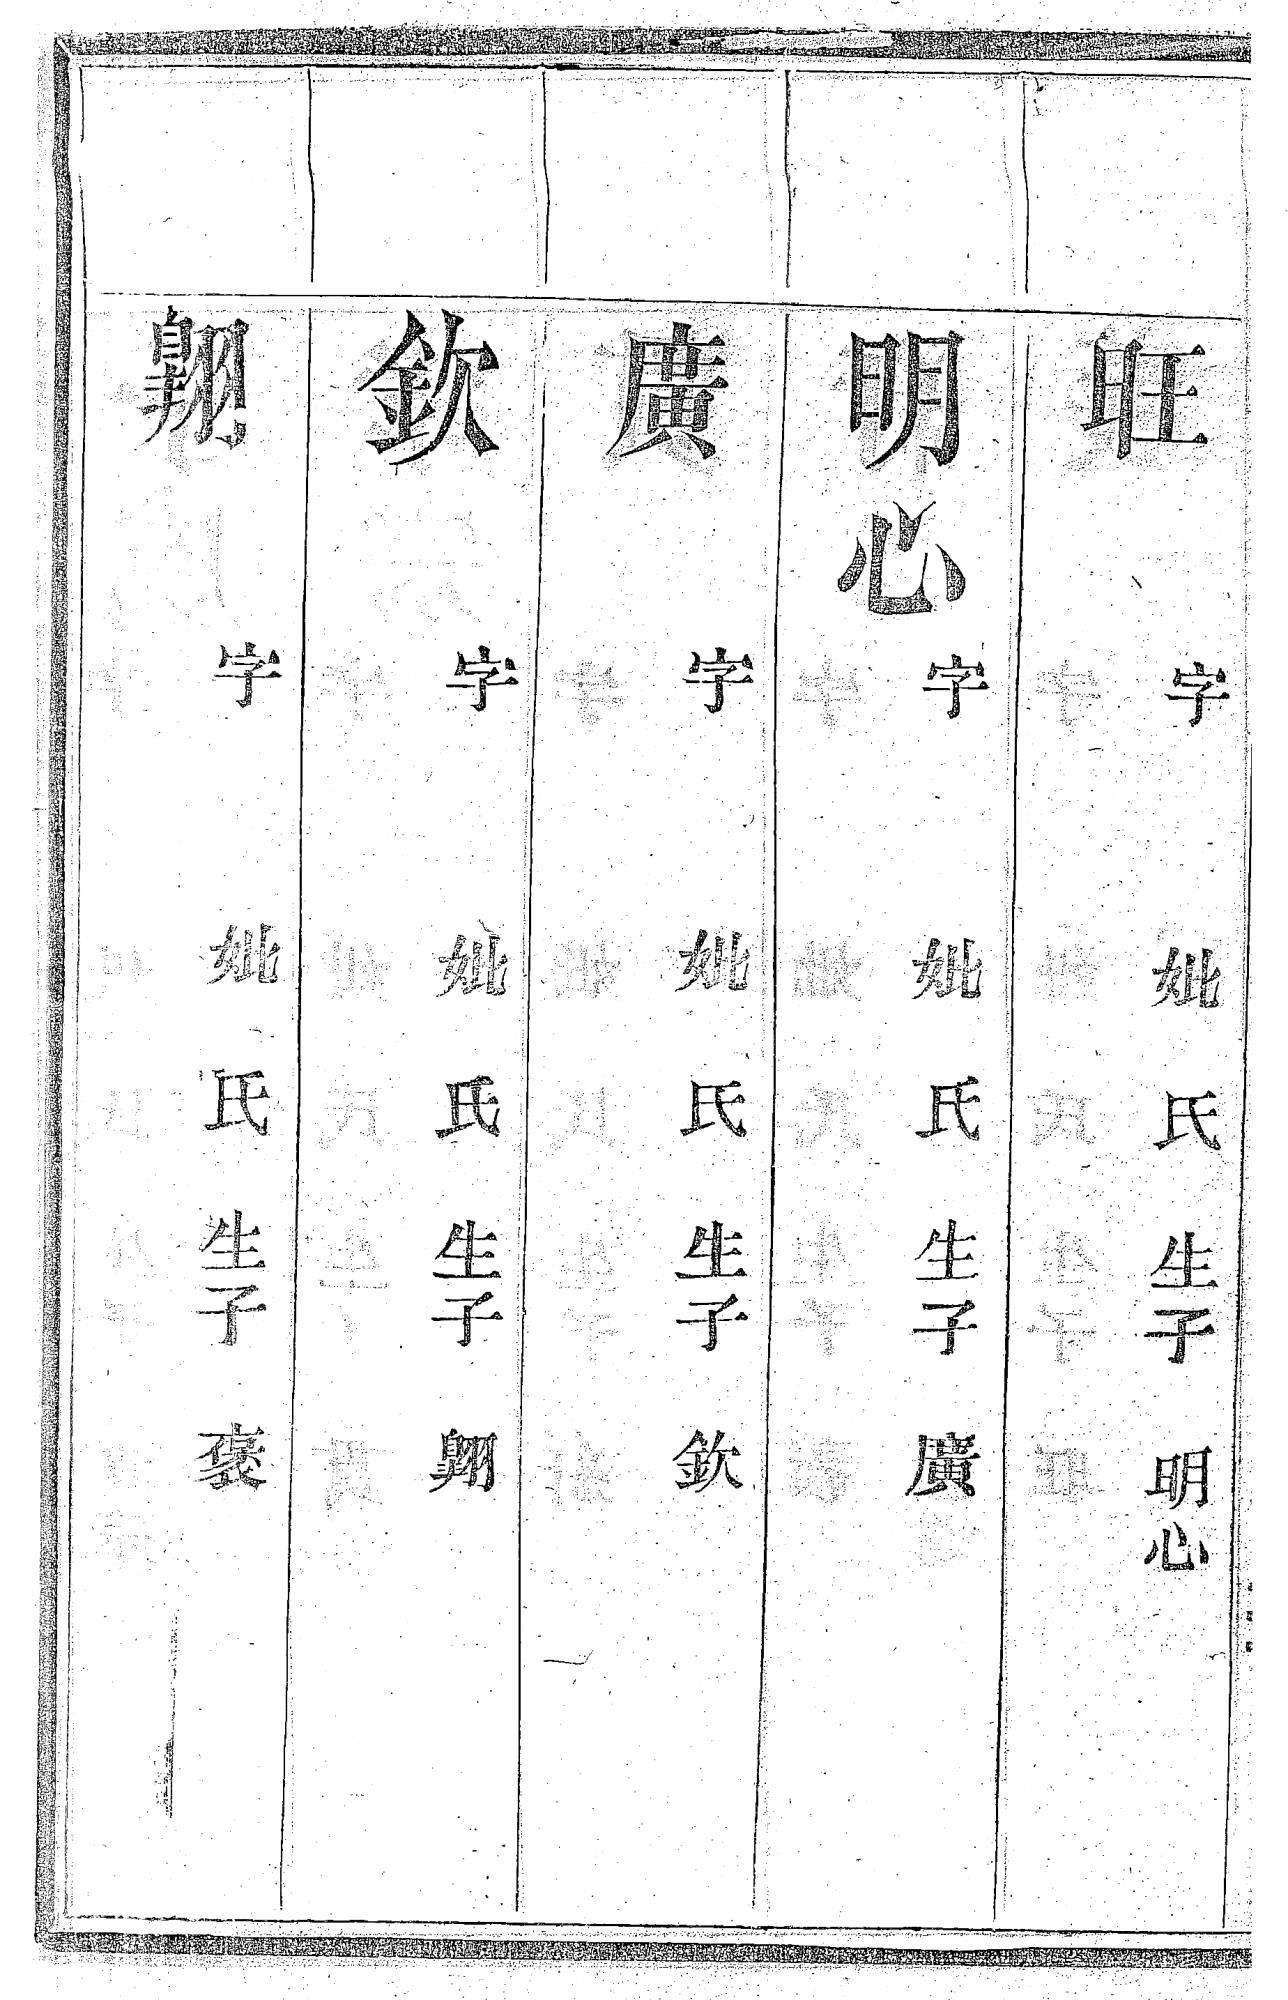 旺 字 妣 氏 生子 明心
明心 字 妣 氏 生子 廣
廣 字 妣 氏 生子 欽
欽 字 妣 氏 生子 翶
翶 字 妣 氏 生子 褒